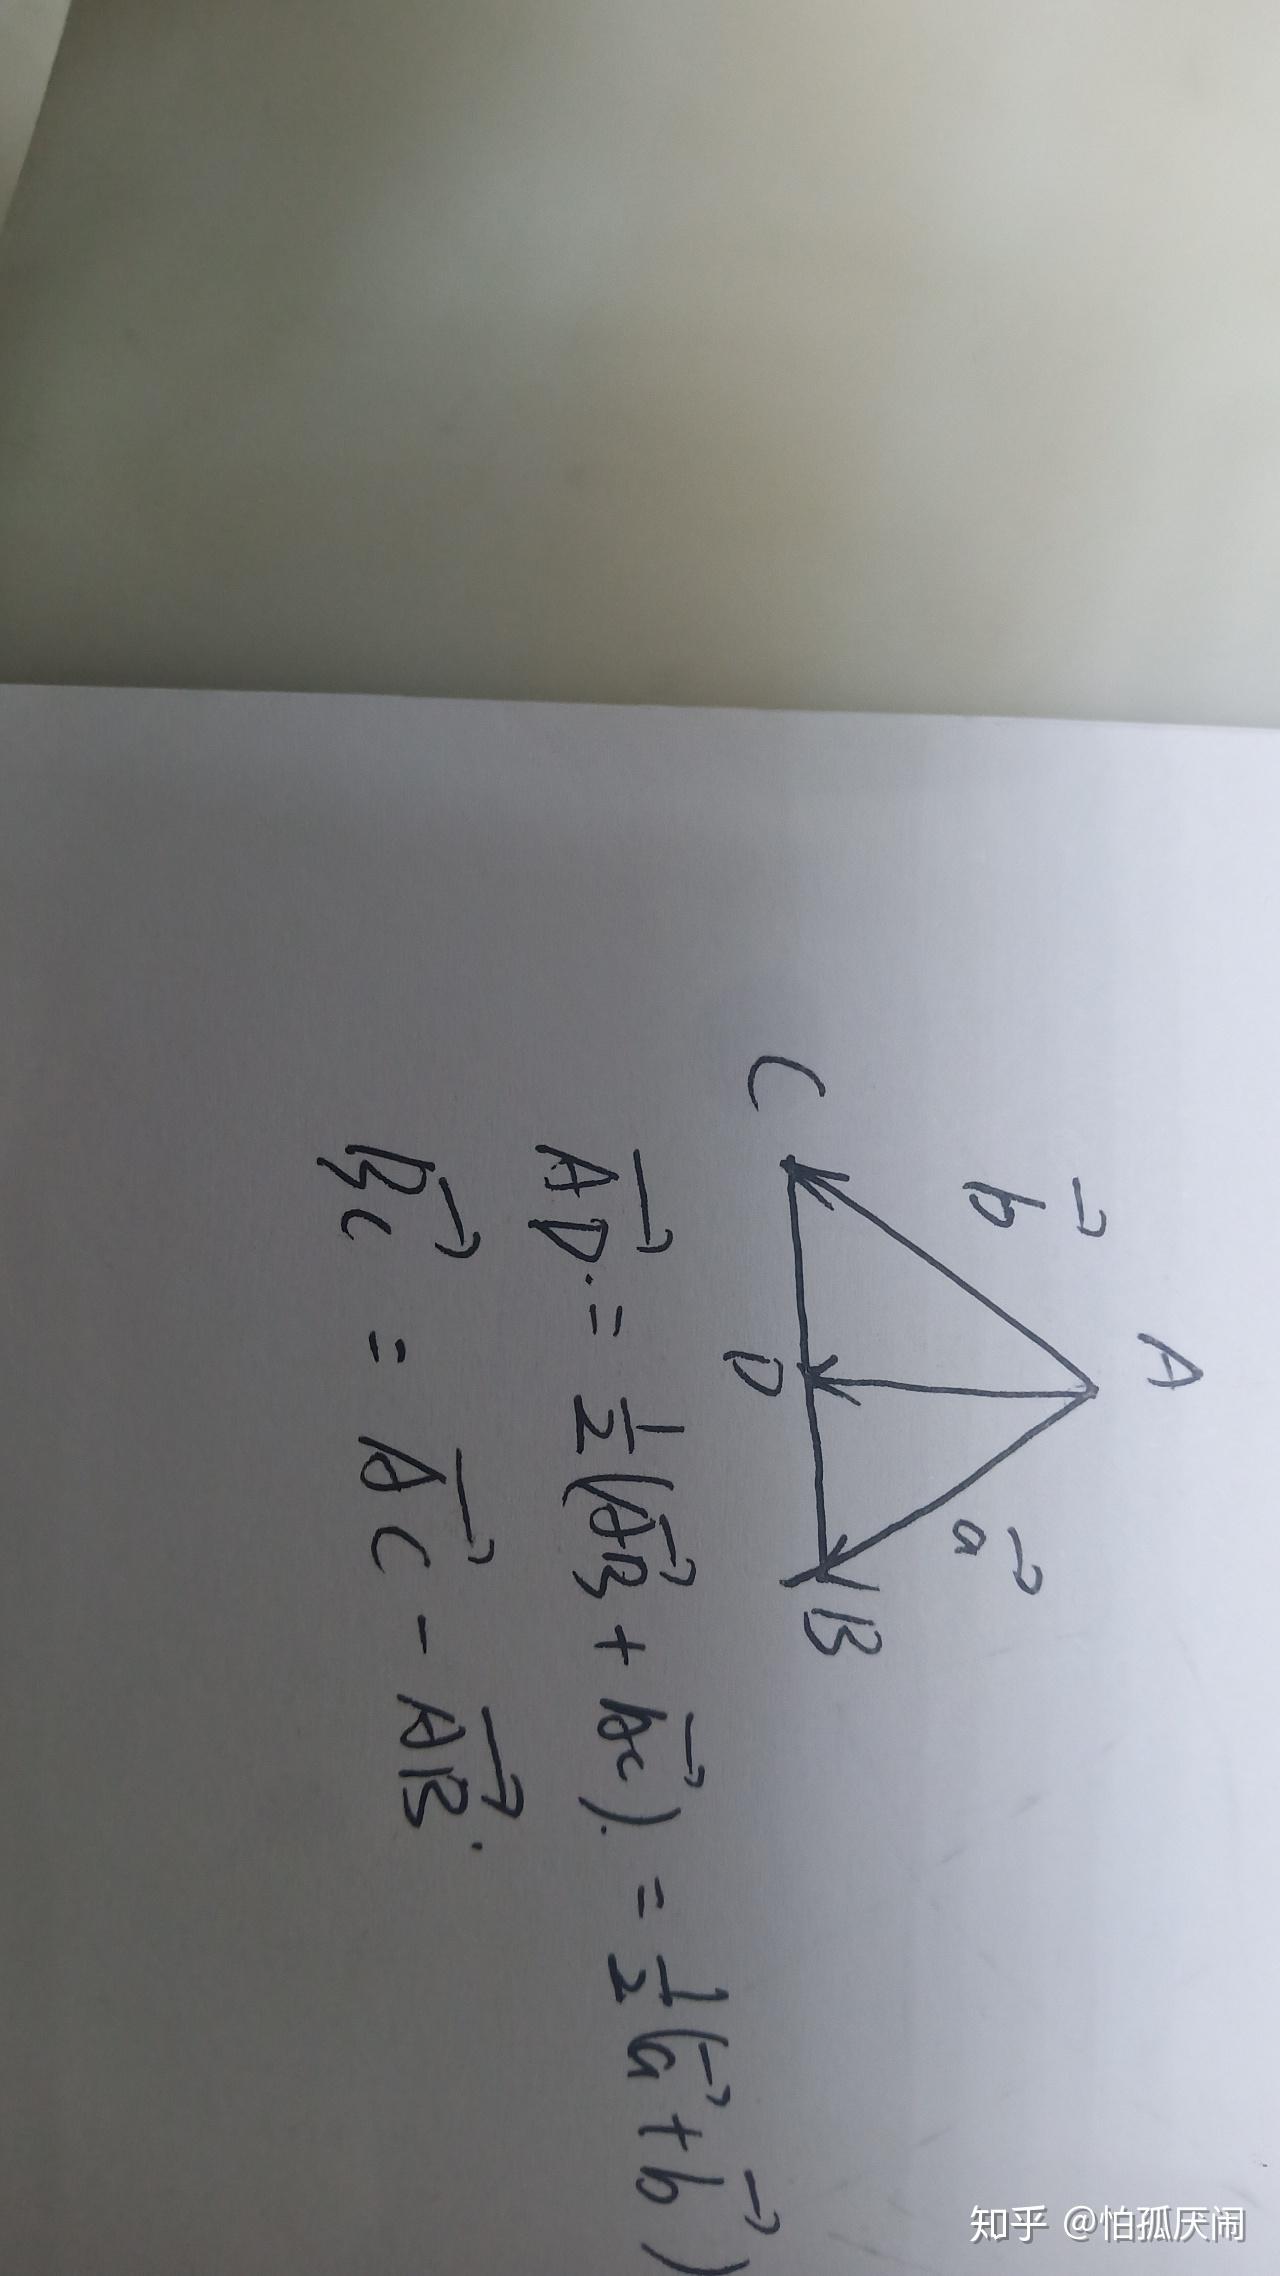 A
b⃗ a⃗
C D B
A⃗D⃗. = 1/2 (A⃗B⃗ + A⃗C⃗). = 1/2 (a⃗ + b⃗)
B⃗C⃗ = A⃗C⃗ - A⃗B⃗.
知乎 @怕孤厌闹